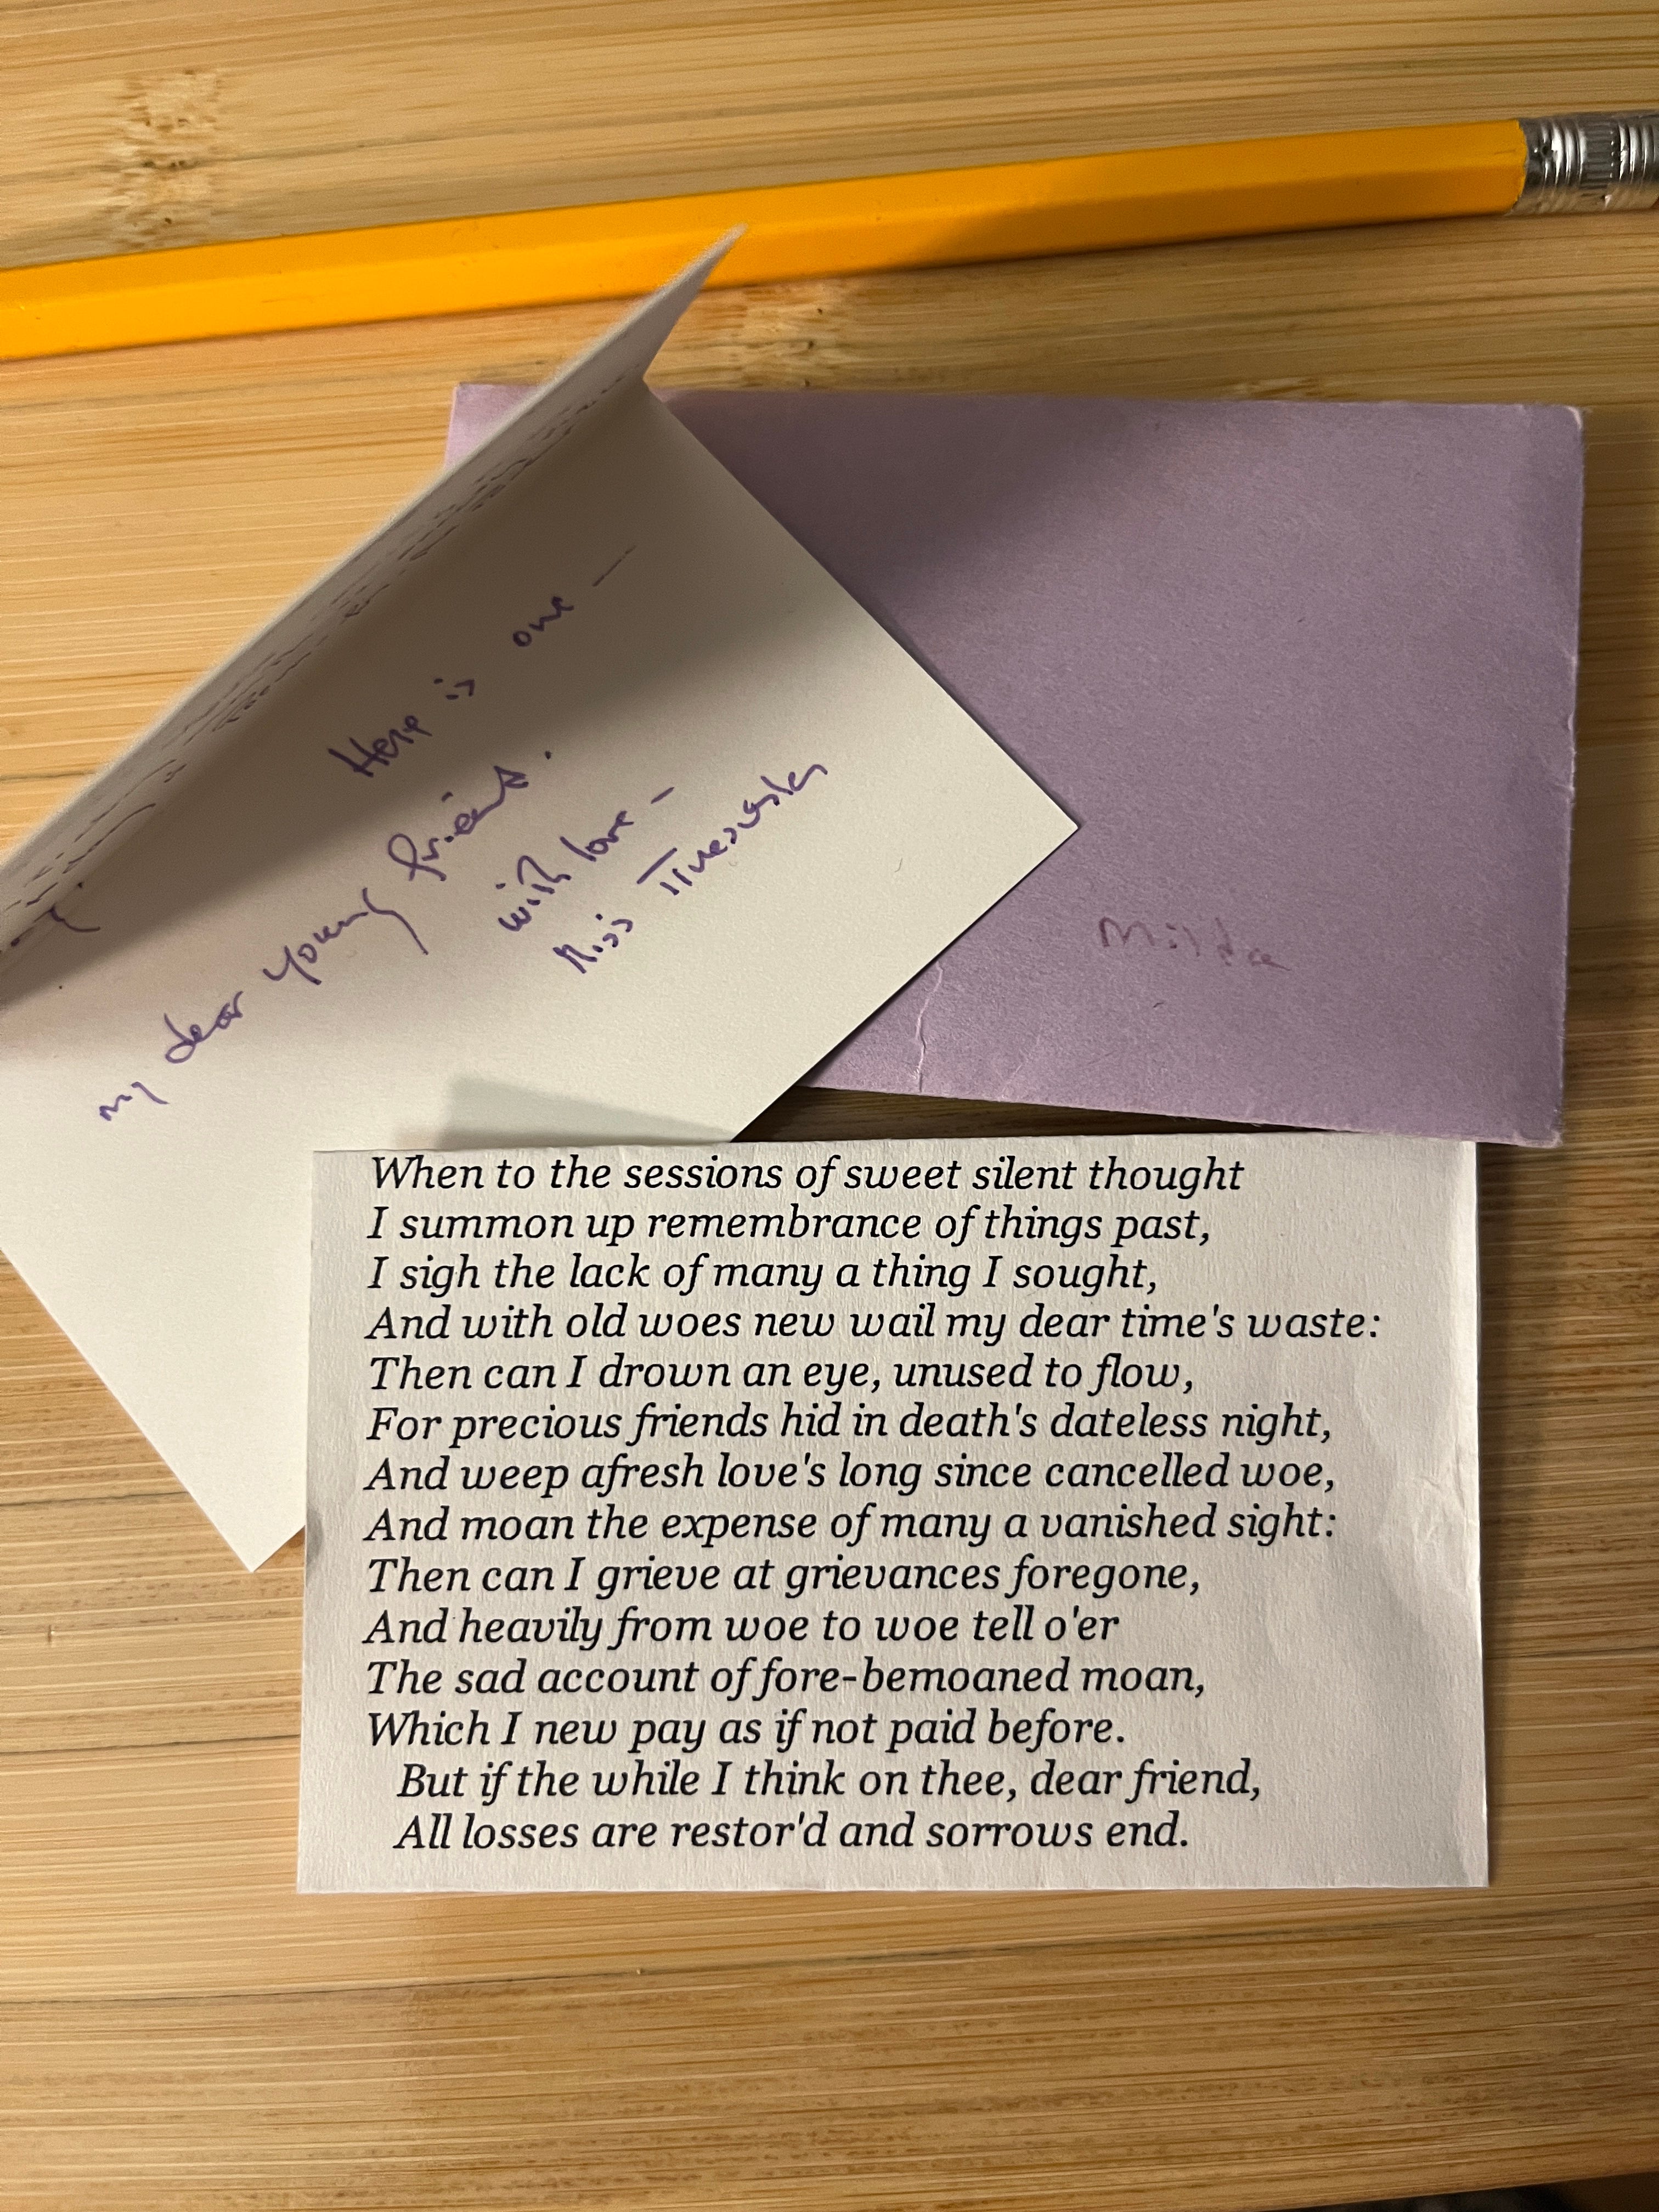 Here is one —
my dear young friend.
with love —
Miss
Milda
When to the sessions of sweet silent thought
I summon up remembrance of things past,
I sigh the lack of many a thing I sought,
And with old woes new wail my dear time's waste:
Then can I drown an eye, unused to flow,
For precious friends hid in death's dateless night,
And weep afresh love's long since cancelled woe,
And moan the expense of many a vanished sight:
Then can I grieve at grievances foregone,
And heavily from woe to woe tell o'er
The sad account of fore-bemoaned moan,
Which I new pay as if not paid before.
But if the while I think on thee, dear friend,
All losses are restor'd and sorrows end.